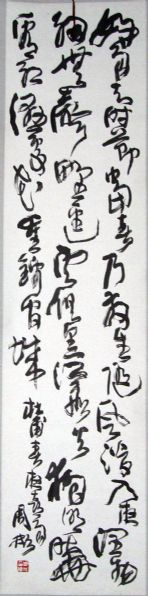 好雨知時節當春乃發生隨風潛入夜潤物
細無聲野徑雲俱黑江船火獨明曉
看紅濕處花重錦官城
杜甫春夜喜雨